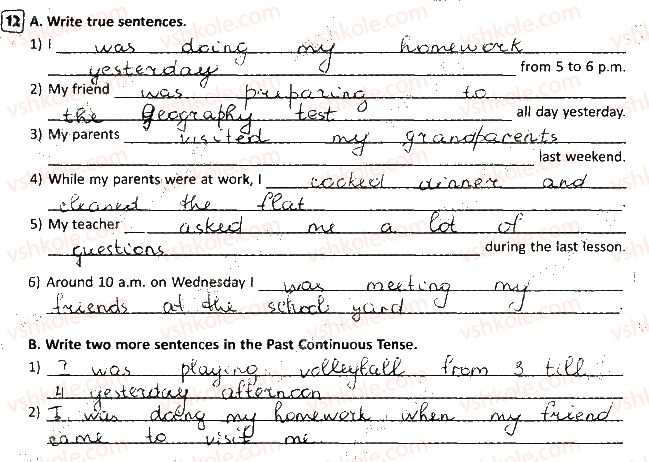 12 A. Write true sentences.
1) I was doing my homework
yesterday from 5 to 6 p.m.
2) My friend was preparing to
the geography test all day yesterday.
3) My parents visited my grandparents
last weekend.
4) While my parents were at work, I cooked dinner and
cleaned the flat.
5) My teacher asked me a lot of
questions during the last lesson.
6) Around 10 a.m. on Wednesday I was meeting my
friends at the school yard.
B. Write two more sentences in the Past Continuous Tense.
1) I was playing volleyball from 3 till
4 yesterday afternoon
2) I was doing my homework when my friend
came to visit me